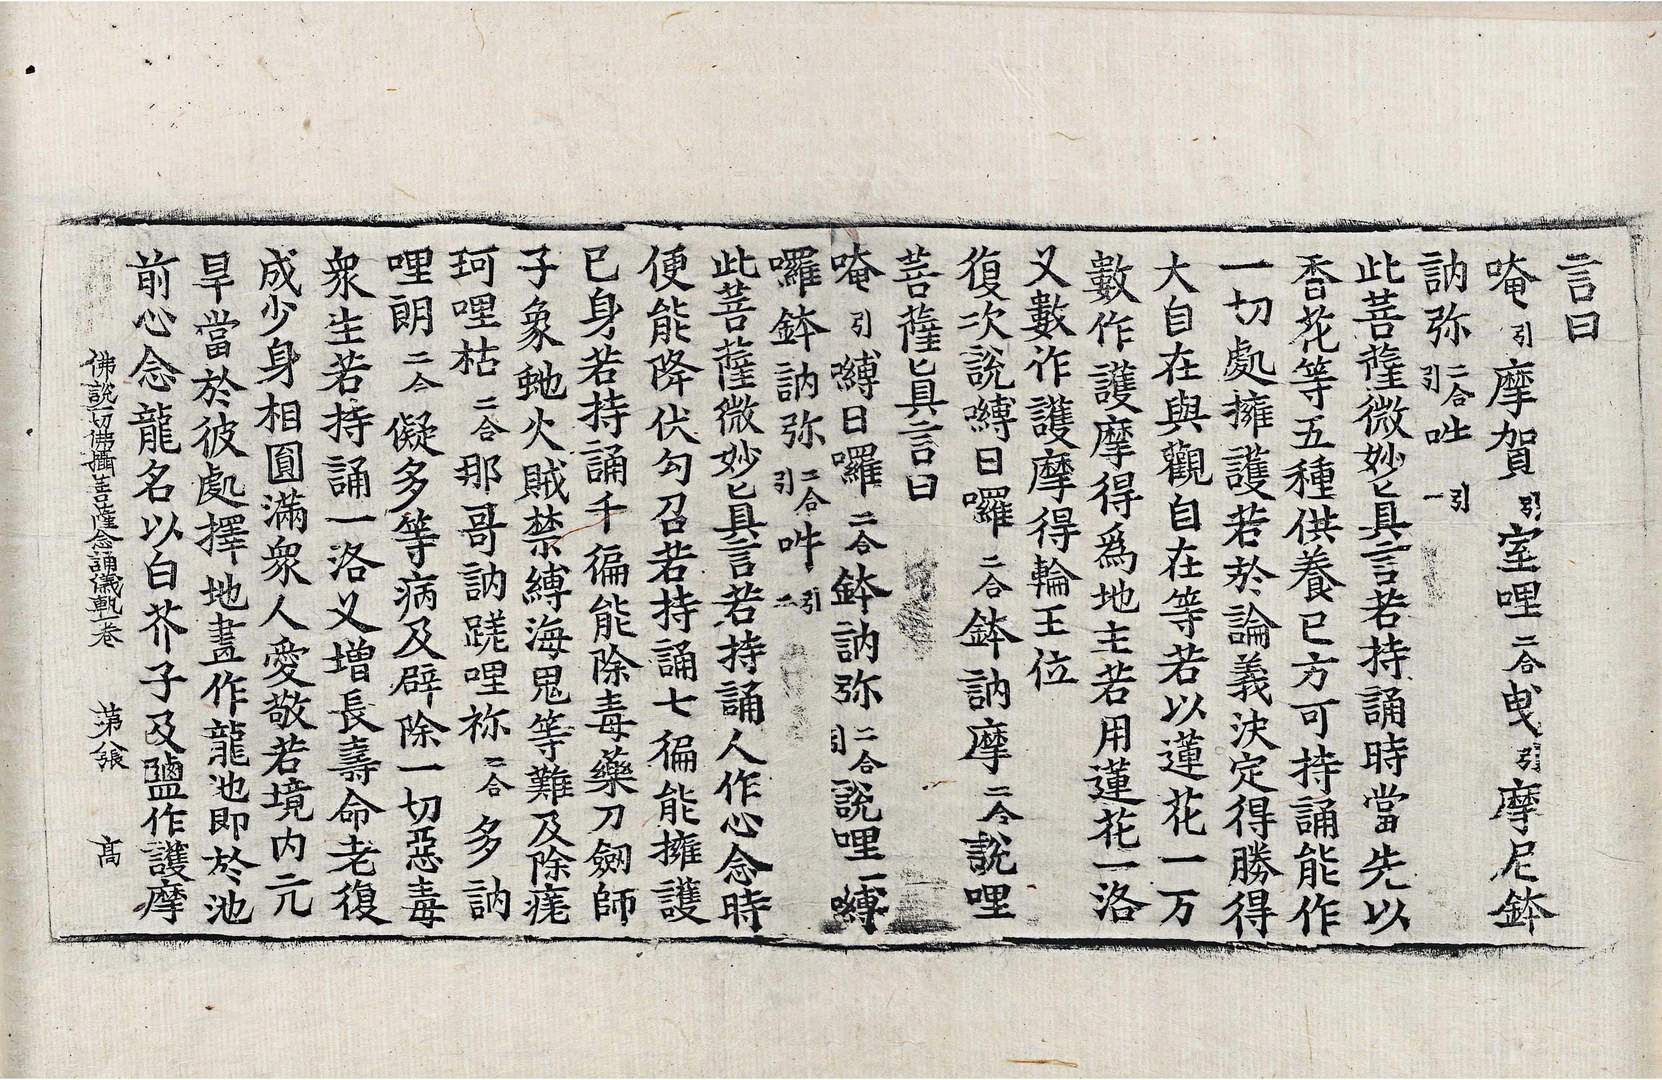 言曰
唵引摩賀引室哩二合曳引摩尼鉢
訥弥二合引吽引一
此菩薩微妙真言若持誦時當先以
香花等五種供養已方可持誦能作
一切處擁護若於論義決定得勝得
大自在與觀自在等若以蓮花一万
數作護摩得爲地主若用蓮花一洛
又數作護摩得輪王位
復次說嚩日囉二合鉢訥摩二合說哩
菩薩真言曰
唵引嚩日囉二合鉢訥弥二合引說哩嚩
囉鉢訥弥二合引吽引二
此菩薩微妙真言若持誦人作心念時
便能降伏勾召若持誦七徧能擁護
已身若持誦千徧能除毒藥刀劒師
子象虵火賊禁縛海鬼等難及除㾗
珂哩枯二合那哥訥蹺哩祢二合多訥
哩朗二合儗多等病及辟除一切惡毒
衆生若持誦一洛又增長壽命老復
成少身相圎滿衆人愛敬若境内亢
旱當於彼處擇地畫作龍池即於池
前心念龍名以白芥子及鹽作護摩
佛說一切佛攝菩薩念誦儀軌卷 第張 髙